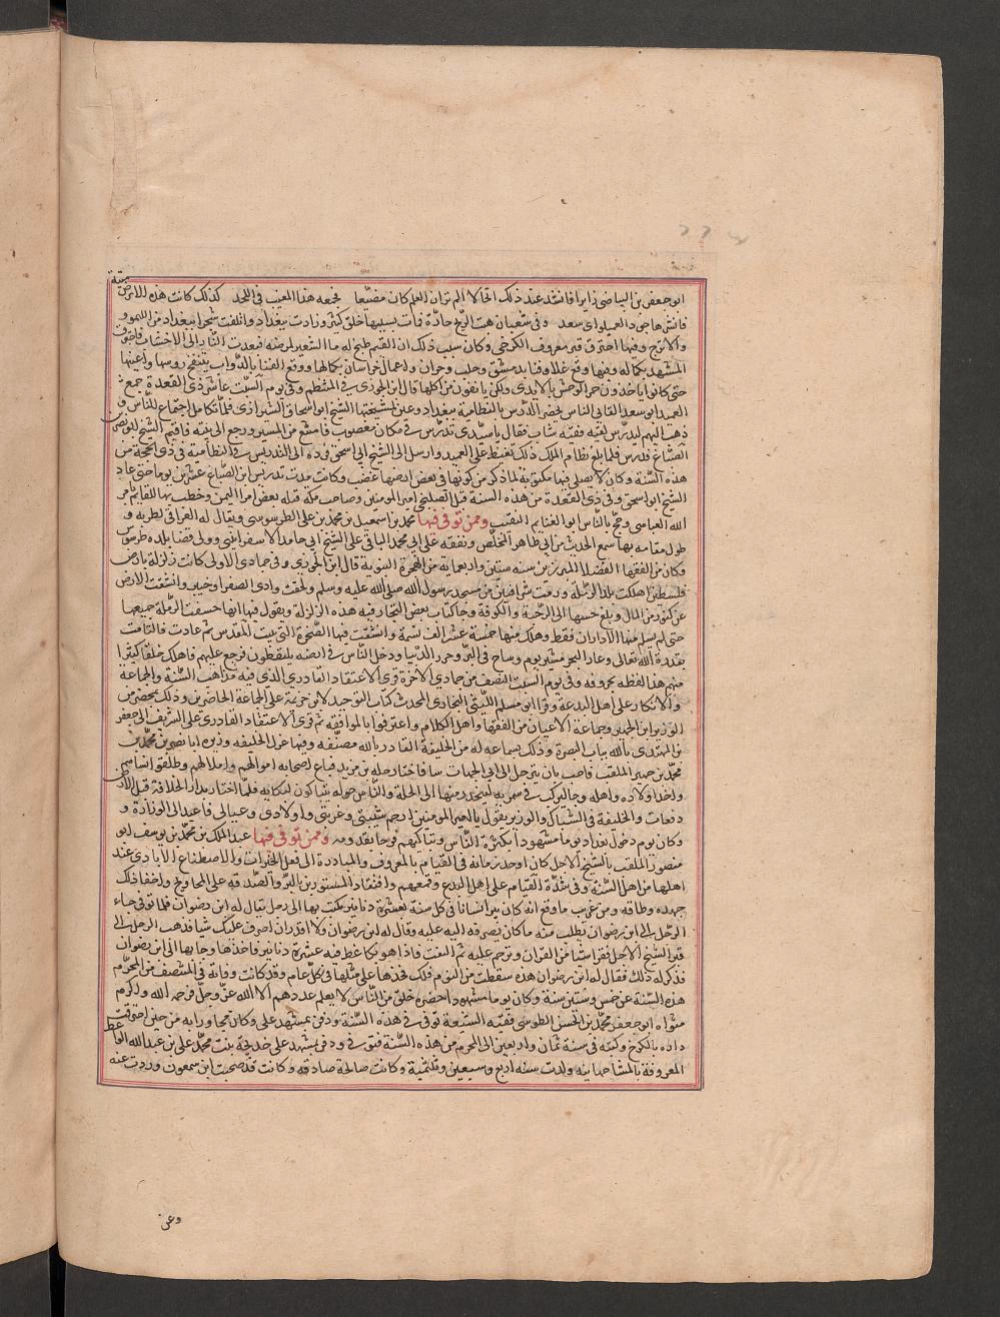 ابو جعفر بن البياضي زايرا فانشد عند ذلك الم تران العلم كان مضيعا فجمعه هذا المغيب في اللحد كذلك كانت هذه الارض ميتة
فانشرها جود العميد ابي سعد وفي شعبان هبت الريح حادة فمات بسببها خلق كثير وزادت ببغداد واتلفت شجرا ببغداد من الليمو
والاترج وفيها احترق قبر معروف الكرخي وكان سبب ذلك ان القيم طبخ له ما الشعير لمرضه فبعدت النار الى الاخشاب فاحترق
المشهد بكماله وفيها وقع غلا وفنا بدمشق وحلب وحران واعمال خراسان بكمالها ووقع الفنا بالدواب ينتفخ روسها واعينها
حتى كانوا ياخذون حمر الوحش بالايدي ولكن يانفون من اكلها قال ابن الجوزي في المنتظم وفي يوم السبت عاشر ذي القعدة جمع
العميد ابو سعد القايني الناس ليحضر الدرس بالنظامية ببغداد وعين لمشيختها الشيخ ابو اسحاق الشيرازي فلما تكامل اجتماع للناس و
ذهب اليهم ليدرس لقيه فقيه شاب فقال ياسيدي تدرس في مكان مغصوب فامتنع من المسير ورجع الى بيته فاقيم الشيخ ابو نصر
الصباغ فدرس فلما بلغ نظام الملك ذلك تغيظ على العميد وارسل الى الشيخ ابي اسحق فرده الى التدريس في النظامية في ذي الحجة من
هذه السنة وكان لا يصلي فيها مكتوبة لما ذكر من كونها في بعض ارضها غصب وكانت مدة تدريس ابن الصباغ عشرين يوما حتى عاد
الشيخ ابو اسحق وفي ذي القعدة من هذه السنة قتل الصليحي امير المومنين وصاحب مكة قتله بعض امرا اليمن وخطب بها للقايم بامر
الله العباسي وحج بالناس ابو الغنايم النقيب وممن توفي فيها محمد بن اسمعيل بن محمد بن علي الطرسوسي ويقال له العراقي لظرفه و
طول مقامه بها سمع الحديث من ابي طاهر المخلص وتفقه على ابي محمد الباقي على الشيخ ابي حامد الاسفرايني وولى قضا بلده طرسوس
وكان من الفقها الفضلا المبرزين سنه ستين واربعمايه من الهجرة النبوية قال ابن الجوزي وفي جمادي الاولى كانت زلزلة بارض
فلسطين اهلكت بلد الرملة ورمت شرافتين من مسجد رسول الله صلى الله عليه وسلم ولحقت وادي الصفرا وخيبر وانشقت الارض
عن كنوز من المال وبلغ حسها الى الرحبة والكوفة وجا كتاب بعض التجار فيه هذه الزلزلة ويقول فيها انها خسفت الرملة جميعها
حتى لم يسلم منها الا داران فقط وهلك منها خمسة عشر الف نسمة وانشقت فيها الصخرة التي ببيت المقدس ثم عادت فالتامت
بقدرة الله تعالى وغار البحر مسيرة يوم وساح في البر وخرب الدنيا ودخل الناس في ارضه يلتقطون فرجع عليهم فاهلك خلقا كثيرا
منهم هذا لفظه بحروفه وفي يوم السبت النصف من جمادي الاخرة قري الاعتقاد القادري الذي فيه مذاهب السنة والجماعة
والانكار على اهل البدعة وقرا ابو مسلم الليثي البخاري المحدث كتاب التوحيد لابن خزيمة على الجماعة الحاضرين وذلك بمحضر من
الوزير ابن الجهير وجماعة الاعيان من الفقها واهل الكلام واعترفوا بالموافقه ثم قري الاعتقاد القادري على الشريف ابي جعفر
بن المهتدي بالله بباب البصرة وذلك بسماعه له من الخليفة القادر بالله مصنفه وفيها عزل الخليفه وزيره ابا نصر بن محمد بن
محمد بن جهير الملقب فاجيب بان يترحل الى اي الجهات شا فاختار حله بن مزيد فباع اصحابه اموالهم واملاكهم وطلقوا انساسهم
واخذ اولاده واهله وجا ليركب في سميريه لينحدر منها الى الحلة والناس حوله يتباكون لبكايه فلما اجتاز بدار الخلافة قبل الارض
دفعات والخليفة في الشباك والوزير يقول يا امير المومنين ارحم شيبتي وغربتي واولادي وعيالي فاعيد الى الوزارة و
وكان يوم دخول بغداد يوما مشهودا بكثرة الناس وتباكيهم فرحا بقدومه وممن توفي فيها عبد الملك بن محمد بن يوسف ابو
منصور الملقب بالشيخ الاجل كان اوحد زمانه في القيام بالمعروف والمبادرة الى فعل الخيرات والاصطناع الايادي عند
اهلها من اهل السنة وفي شدة القيام على اهل البدع وقمعهم وافتقاد المستورين بالبر والصدقه على المحاويج واخفا ذلك
جهده وطاقه ومن غريب ما وقع انه كان يبر انسانا في كل سنة بعشرة دنانير يكتب بها الى رجل يقال له ابن رضوان فلما توفي جاء
الرجل الى ابن رضوان يطلب منه ما كان يصرفه اليه عليه وقال له ابن رضوان ولا اقدر ان اصرف عليك شيا فذهب الرجل الى
قبر الشيخ الاجل فقرا شيا من القران وترحم عليه ثم التفت فاذا هو بكاغط فيه عشرة دنانير فاخذها وجا بها الى ابن رضوان
فذكر له ذلك فقال له ابن رضوان هذه سقطت من اليوم فلك فخذها على مثلها في كل عام وقد كانت وفاته في المنتصف من المحرم
هذه السنة عن خمس وستين سنة وكان يوما مشهودا حضره خلق من الناس لا يعلم عددهم الا الله عز وجل فرحمه الله واكرم
مثواه ابو جعفر محمد بن الحسن الطوسي فقيه الشيعة توفي في هذه السنة ودفن بمشهد علي وكان مجاورا به من حين احترقت
داره بالكرخ وكتبه في سنة ثمان واربعين الى المحرم من هذه السنة فتوفي ودفن بمشهد علي خديجة بنت محمد علي بن عبد الله الواعظ
المعروفة بالشاهجهانيه ولدت سنه اربع وسبعين وثلثمية وكانت صالحة صادقه وكانت قد صحبت ابن سمعون وردت عنه
وعن